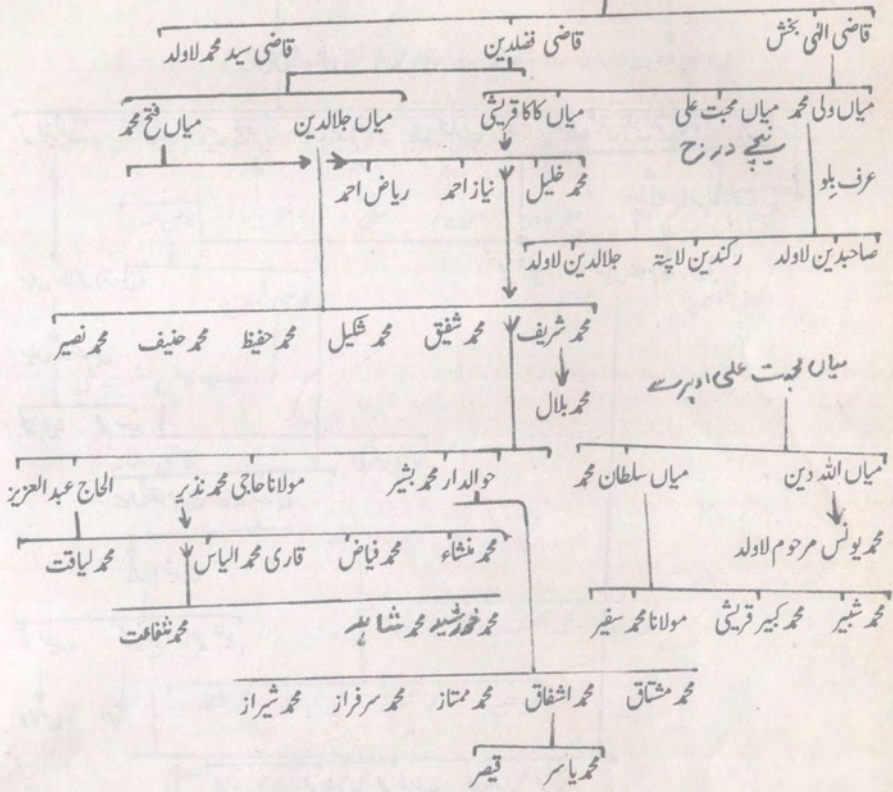 قاضی الٰہی بخش قاضی فضلدین قاضی سید محمد لاولد
میاں ولی محمد میاں محبت علی میاں کاکا قریشی میاں جلالدین میاں فتح محمد
نیچے درج
عرف بلو
محمد خلیل نیاز احمد ریاض احمد
صاحبدین لاولد رکندین لاپتہ جلالدین لاولد
محمد شریف محمد شفیق محمد شکیل محمد حفیظ محمد حنیف محمد نصیر
میاں محبت علی اوپر سے
محمد بلال
میاں اللہ دین میاں سلطان محمد حوالدار محمد بشیر مولانا حاجی محمد نذیر الحاج عبدالعزیز
محمد یونس مرحوم لاولد
محمد منشاء محمد فیاض قاری محمد الیاس محمد لیاقت
محمد شبیر محمد کبیر قریشی مولانا محمد سفیر
محمد خورشید محمد شاہد محمد شفاعت
محمد مشتاق محمد اشفاق محمد ممتاز محمد سرفراز محمد شیراز
محمد یاسر قیصر